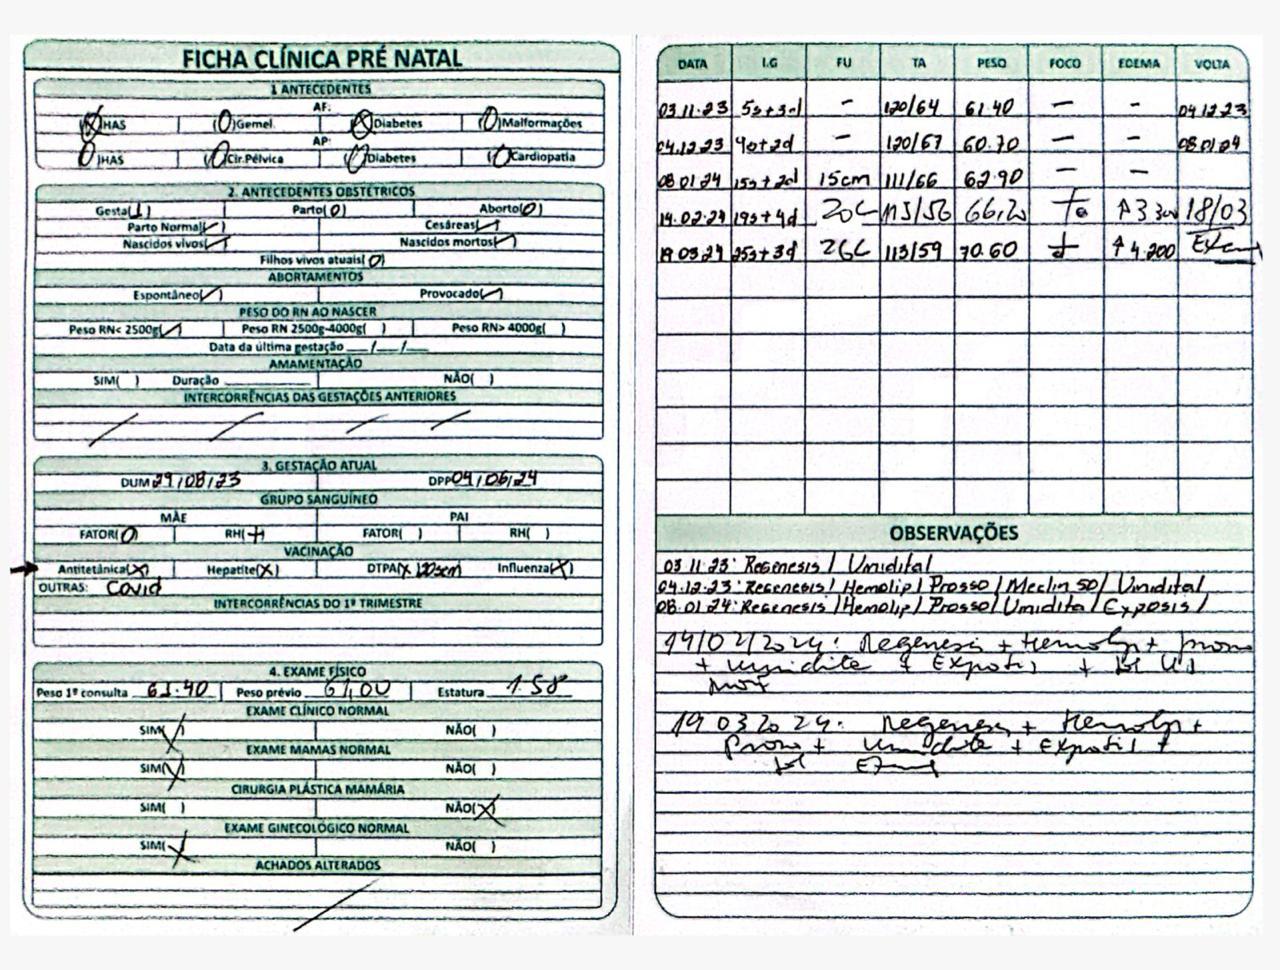 FICHA CLÍNICA PRÉ NATAL
1 ANTECEDENTES
AF:
(X)HAS (0)Gemel. (X)Diabetes (0)Malformações
AP:
(0)HAS (0)Cir.Pélvica (0)Diabetes (0)Cardiopatia
2. ANTECEDENTES OBSTÉTRICOS
Gesta(1) Parto(0) Aborto(0)
Parto Normal( ) Cesáreas( )
Nascidos vivos( ) Nascidos mortos( )
Filhos vivos atuais(0)
ABORTAMENTOS
Espontâneo( ) Provocado( )
PESO DO RN AO NASCER
Peso RN< 2500g( ) Peso RN 2500g-4000g( ) Peso RN> 4000g( )
Data da última gestação __/__/__
AMAMENTAÇÃO
SIM( ) Duração NÃO( )
INTERCORRÊNCIAS DAS GESTAÇÕES ANTERIORES
3. GESTAÇÃO ATUAL
DUM 29/08/23 DPP 04/06/24
GRUPO SANGUÍNEO
MÃE PAI
FATOR(0) RH(+) FATOR( ) RH( )
VACINAÇÃO
Antitetânica(X) Hepatite(X) DTPA(X Influenza(X)
OUTRAS: Covid
INTERCORRÊNCIAS DO 1º TRIMESTRE
4. EXAME FÍSICO
Peso 1ª consulta 61.40 Peso prévio 61,00 Estatura 1.58
EXAME CLÍNICO NORMAL
SIM(X) NÃO( )
EXAME MAMAS NORMAL
SIM(X) NÃO( )
CIRURGIA PLÁSTICA MAMÁRIA
SIM( ) NÃO(X)
EXAME GINECOLÓGICO NORMAL
SIM(X) NÃO( )
ACHADOS ALTERADOS
DATA I.G FU TA PESO FOCO EDEMA VOLTA
03.11.23 5s+3d - 120/64 61.40 - - 04.12.23
04.12.23 9s+2d - 120/67 60.70 - - 08.01.24
08.01.24 15s+2d 15cm 111/66 62.90 - -
14.02.24 19s+4d 20c 113/56 66,20 + 18/03
19.03.24 25s+3d 26c 113/59 70.60 + ↑4.200
OBSERVAÇÕES
03.11.23: Regenesis / Umidital
04.12.23: Regenesis / Hemolip / Prosso / Meclin 50 / Umidital
08.01.24: Regenesis / Hemolip / Prosso / Umidita / Exposis /
14/02/2024: Regenesis + Hemolip + Prosso
+ Umidita + +
19 03 2024: Regenesis + Hemolip +
Prosso + Umidita + +